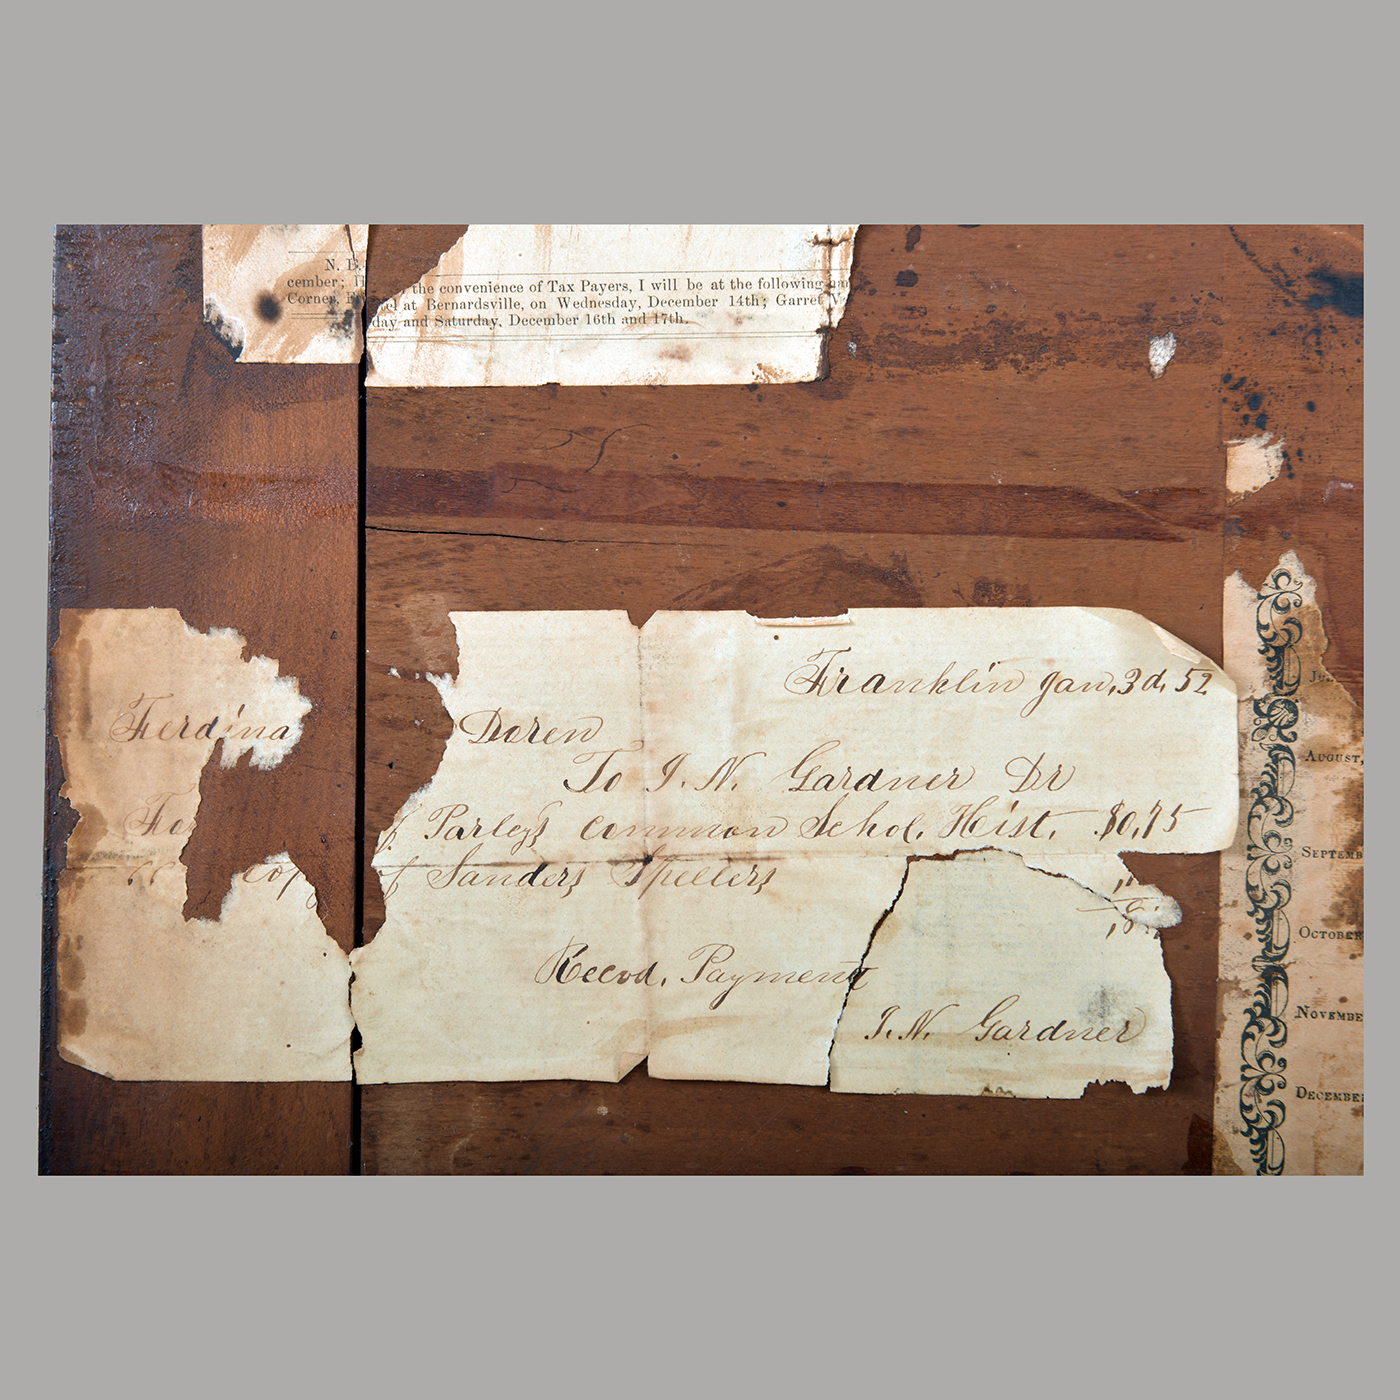 N. B.
the convenience of Tax Payers, I will be at the following
cember;
Corner, at Bernardsville, on Wednesday, December 14th; Garret
day and Saturday, December 16th and 17th.
Franklin Jan, 3d, 52
Ferdina Doren
To I. N. Gardner Dr
Parley's Common Schol. Hist, $0,75
of Sanders Spellers
Recvd, Payment
I. N. Gardner
AUGUST,
SEPTEMB
OCTOBER
NOVEMBE
DECEMBE